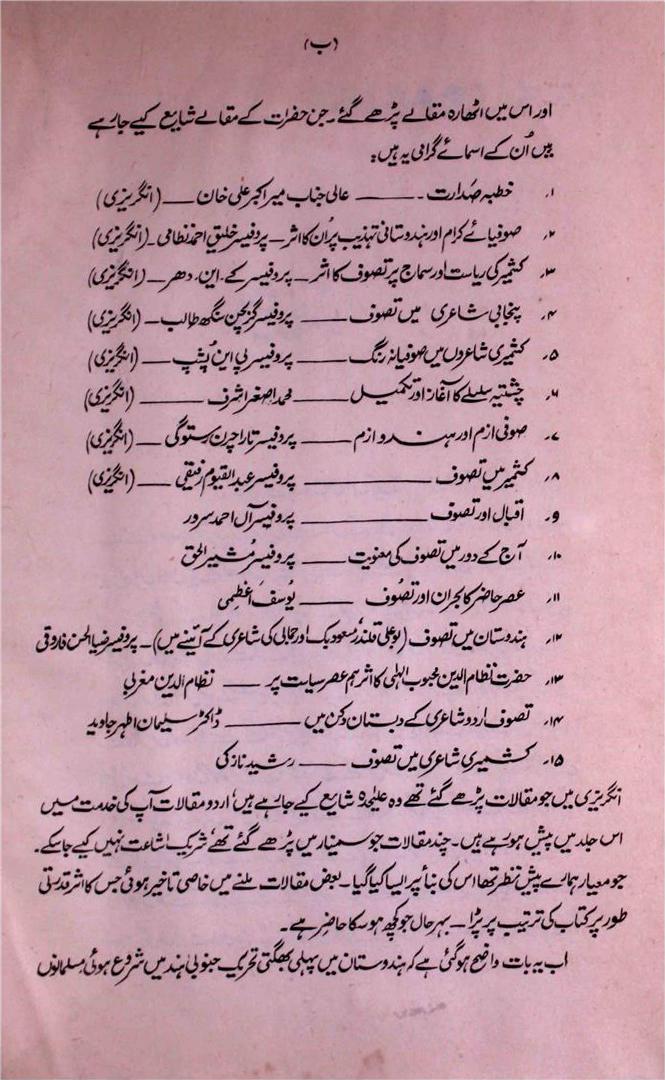 (ب)
اور اس میں اٹھارہ مقالے پڑھے گئے۔ جن حضرات کے مقالے شایع کیے جارہے
ہیں اُن کے اسمائے گرامی یہ ہیں:
۱۔ خطبہ صدارت ۔——— عالی جناب میر اکبر علی خان —— (انگریزی)
۲۔ صوفیائے کرام اور ہندوستانی تہذیب پر اُن کا اثر — پروفیسر خلیق احمد نظامی ۔ (انگریزی)
۳۔ کشمیر کی ریاست اور سماج پر تصوف کا اثر — پروفیسر کے۔ این۔ دھر — (انگریزی)
۴۔ پنجابی شاعری میں تصوف ——— پروفیسر گربچن سنگھ طالب — (انگریزی)
۵۔ کشمیری شاعروں میں صوفیانہ رنگ ——— پروفیسر پی این پُشپ —— (انگریزی)
۶۔ چشتیہ سلسلے کا آغاز اور تکمیل ——— محمد اصغر اشرف ——— (انگریزی)
۷۔ صوفی ازم اور ہندو ازم ——— پروفیسر تارا چرن رستوگی —— (انگریزی)
۸۔ کشمیر میں تصوف ——————— پروفیسر عبدالقیوم رفیقی —— (انگریزی)
۹۔ اقبال اور تصوف ——————— پروفیسر آل احمد سرور
۱۰۔ آج کے دور میں تصوف کی معنویت ——— پروفیسر مُشیر الحق
۱۱۔ عصر حاضر کا بحران اور تصوّف ——— یُوسف اعظمی
۱۲۔ ہندوستان میں تصوف (بوعلی قلندر، مسعود بک اور جمالی کی شاعری کے آئینے میں)۔ پروفیسر ضیا الحسن فاروقی
۱۳۔ حضرت نظام الدین محبوب الہٰی کا اثر ہم عصر سیاست پر —— نظام الدین مغربی
۱۴۔ تصوف اردو شاعری کے دبستان دکن میں ——— ڈاکٹر سلیمان اطہر جاوید
۱۵۔ کشمیری شاعری میں تصوف ——— رشید نازکی
انگریزی میں جو مقالات پڑھے گئے تھے وہ علیٰحدہ شایع کیے جارہے ہیں، اردو مقالات آپ کی خدمت میں
اس جلد میں پیش ہورہے ہیں۔ چند مقالات جو سمینار میں پڑھے گئے تھے، شریک اشاعت نہیں کیے جاسکے۔
جو معیار ہمارے پیش نظر تھا اس کی بنا پر ایسا کیا گیا۔ بعض مقالات ملنے میں خاصی تاخیر ہوئی جس کا اثر قدرتی
طور پر کتاب کی ترتیب پر پڑا — بہر حال جو کچھ ہوسکا حاضر ہے۔
اب یہ بات واضح ہوگئی ہے کہ ہندوستان میں پہلی بھگتی تحریک جنوبی ہند میں شروع ہوئی، مسلمانوں